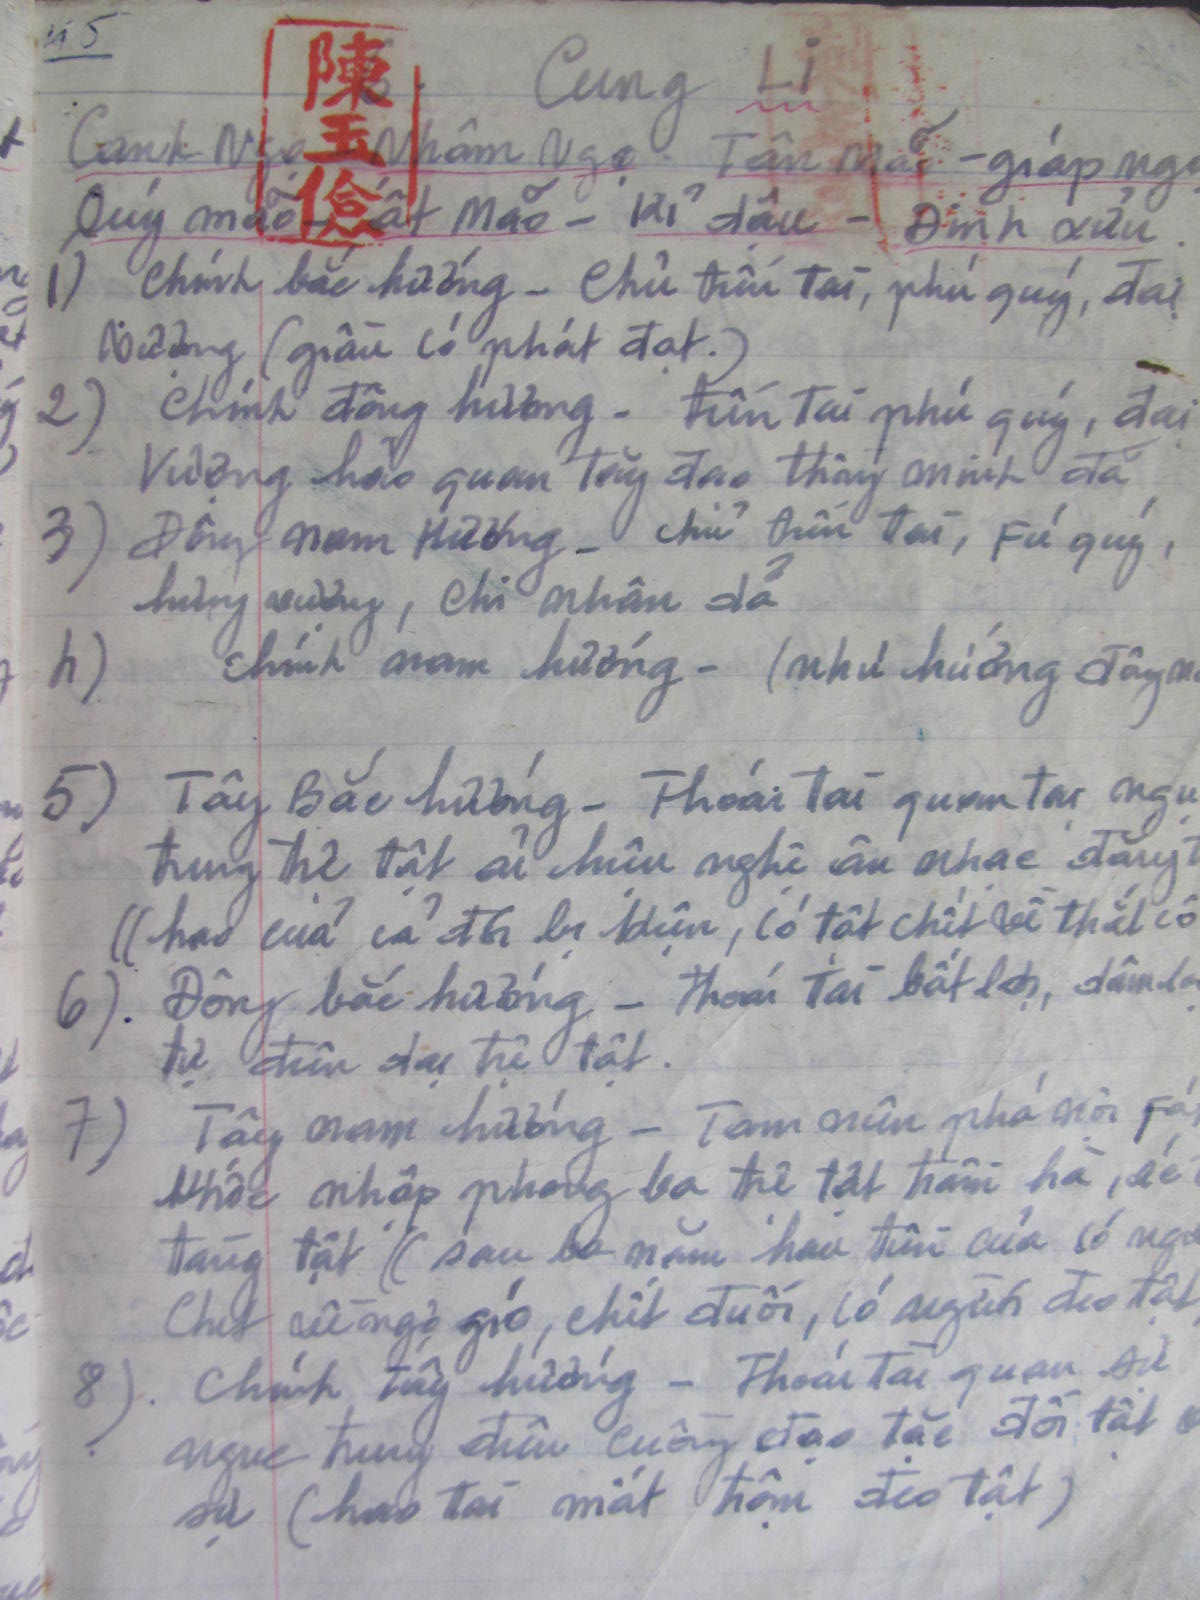 45
陳玉儉
Cung Li
Canh Ngọ Nhâm Ngọ. Tân Mão - giáp ngọ
Quý mão - ất Mão - Kỉ dậu - Đinh xửu.
1) Chính bắc hướng - Chủ tiến tài, phú quý, đại
vượng (giầu có phát đạt.)
2) Chính đông hướng - tiến tài phú quý, đại
Vượng hảo quan tây đao thông minh đă
3) Đông nam Hướng - chủ tiến tài, Fú quý,
hưng vượng, Chi nhân đả
4) chính nam hướng - (như hướng đông
5) Tây Bắc hướng - Thoái tài quan tai ngụ
trung trê tật ải hiếu nghê âm nhạc
((hao của cả đời bị kiện, có tật chết về thắt cổ
6). Đông bắc hướng - thoái tài bất lợi,
tự điên dại trê tật.
7) Tây nam hướng - Tam niên phá
Khốc nhập phong ba trê tật trầm hà,
tàng tật (( sau ba năm hao tiền của có
Chết về ngộ gió, chết đuối, có người đeo tật
8). Chính tây hướng - Thoái tài quan sử
ngục trung điên cuồng đạo tặc đới tật
sự (hao tài mất trộm đeo tật)